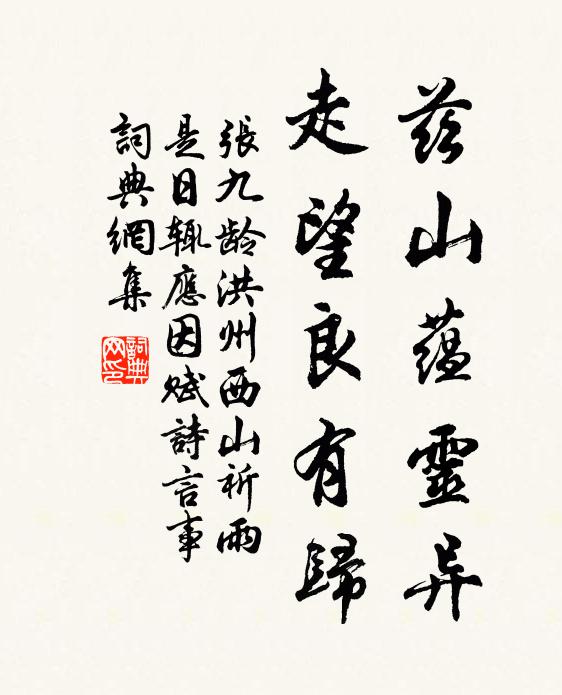 茲山蘊靈异
走望良有歸
張九齡洪州西山祈雨
是日輒應因賦詩言事
詞典網集
詞典网印